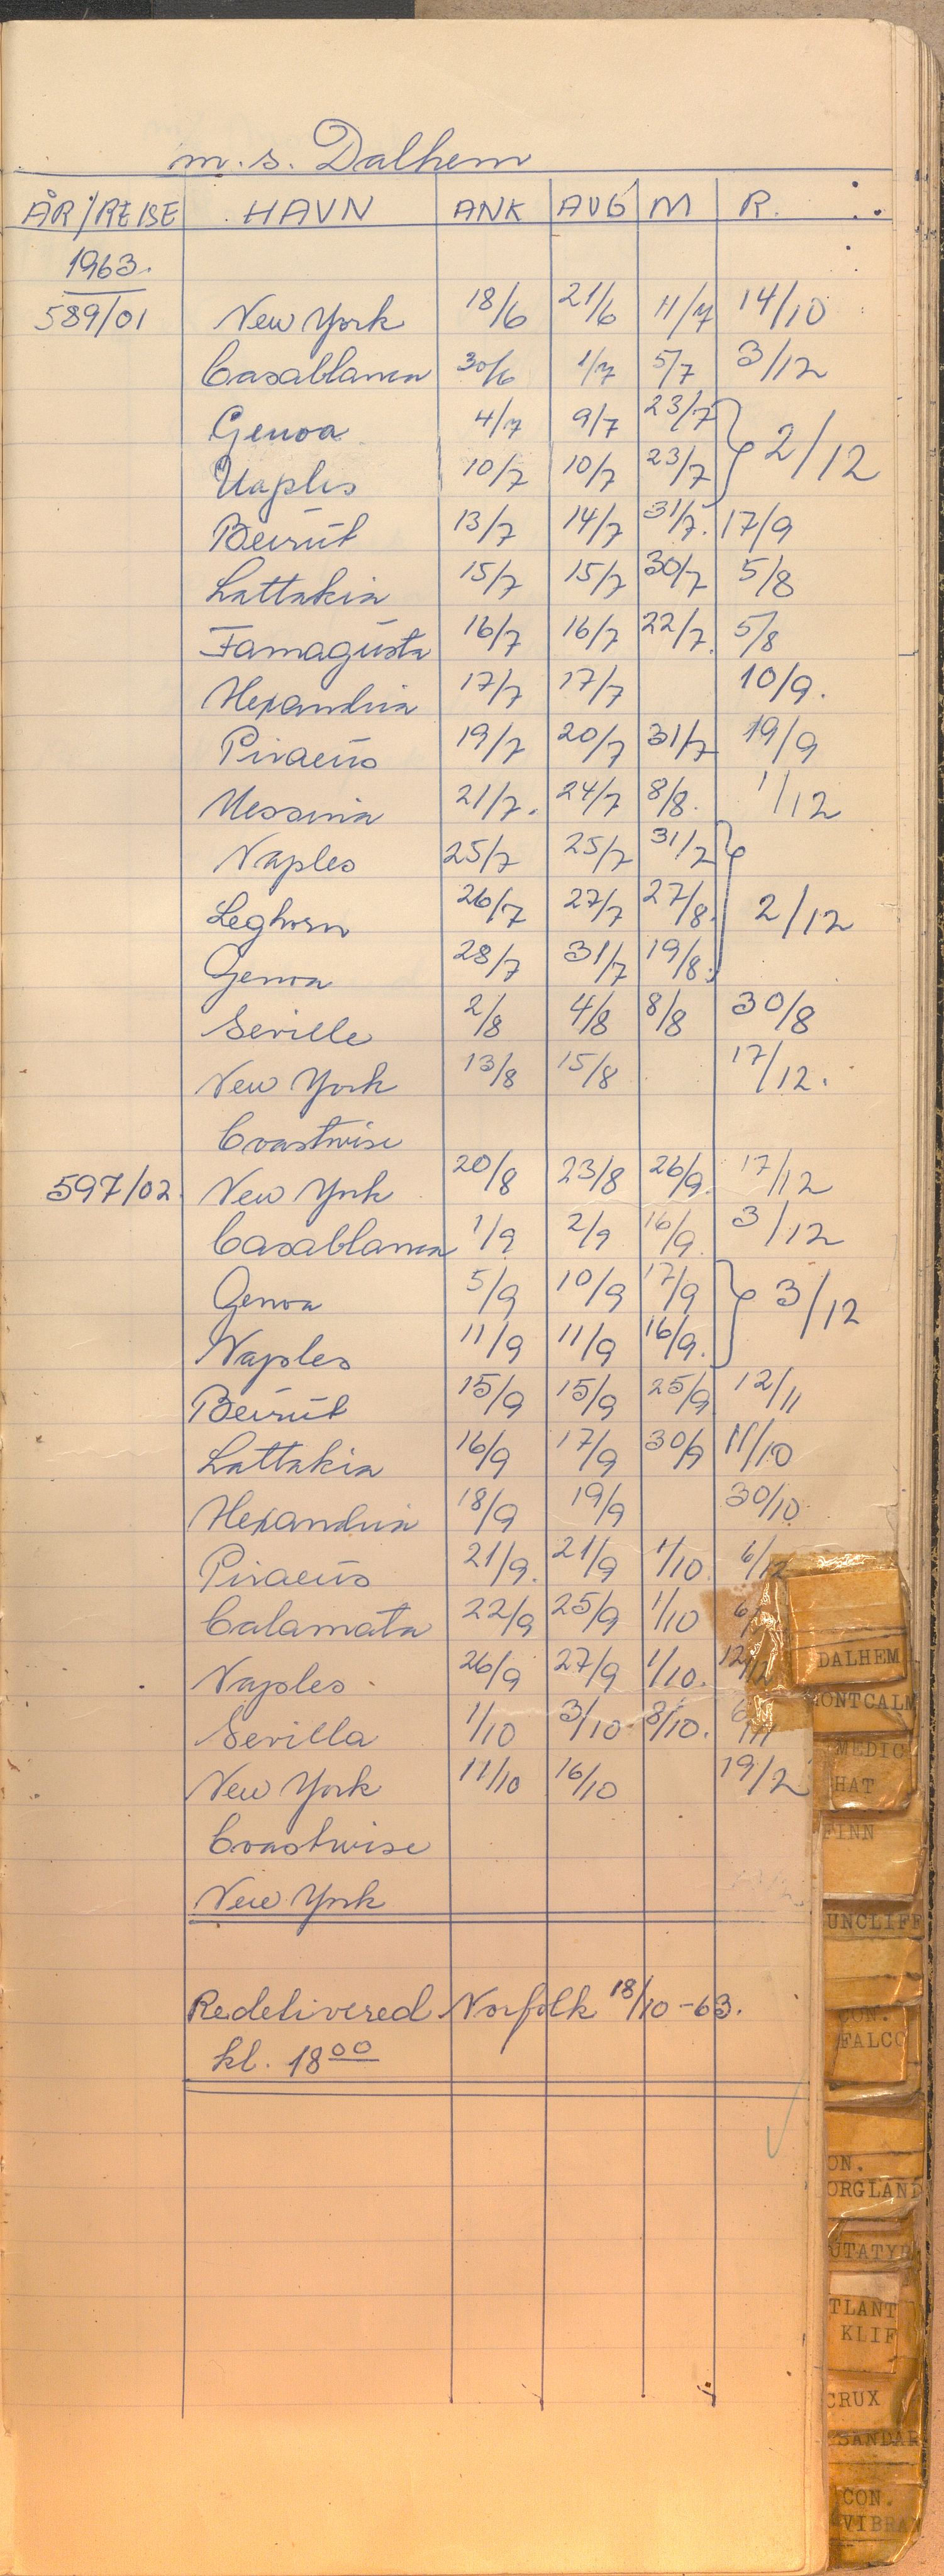 m.s. Dalhem
ÅR/REISE HAVN ANK AVG M R.
1963.
589/01 New York 18/6 21/6 11/7 14/10
Casablanca 30/6 1/7 5/7 3/12
Genoa 4/7 9/7 23/7
2/12
Naples 10/7 10/7 23/7
Beirut 13/7 14/7 31/7. 17/9
Lattakia 15/7 15/7 30/7 5/8
Famagusta 16/7 16/7 22/7. 5/8
Alexandria 17/7 17/7 10/9.
Piraeus 19/7 20/7 31/7 19/9
Messina 21/7. 24/7 8/8. 1/12
Naples 25/7 25/7 31/7
Leghorn 26/7 27/7 27/8. 2/12
Genoa 28/7 31/7 19/8.
Seville 2/8 4/8 8/8 30/8
New York 13/8 15/8 17/12.
Coastwise
597/02. New York 20/8 23/8 26/9. 17/12
Casablanca 1/9 2/9 16/9. 3/12
Genoa 5/9 10/9 17/9 3/12
Naples 11/9 11/9 16/9.
Beirut 15/9 15/9 25/9 12/11
Lattakia 16/9 17/9 30/9 11/10
Alexandria 18/9 19/9 30/10.
Piraeus 21/9. 21/9 1/10. 6/12
Calamata 22/9 25/9 1/10
Naples. 26/9 27/9 1/10.
Sevilla 1/10 3/10. 8/10.
New York 11/10 16/10 19/2
Coastwise
New York
Redelivered Norfolk 18/10-63.
kl. 1800
DALHEM
MONTCALM
MEDIC
HAT
FINN
UNCLIFF
CON.
FALCO
ON.
ORGLAND
UTATYR
TLANT
KLIF
CRUX
SANDAR
CON.
VIBRAN